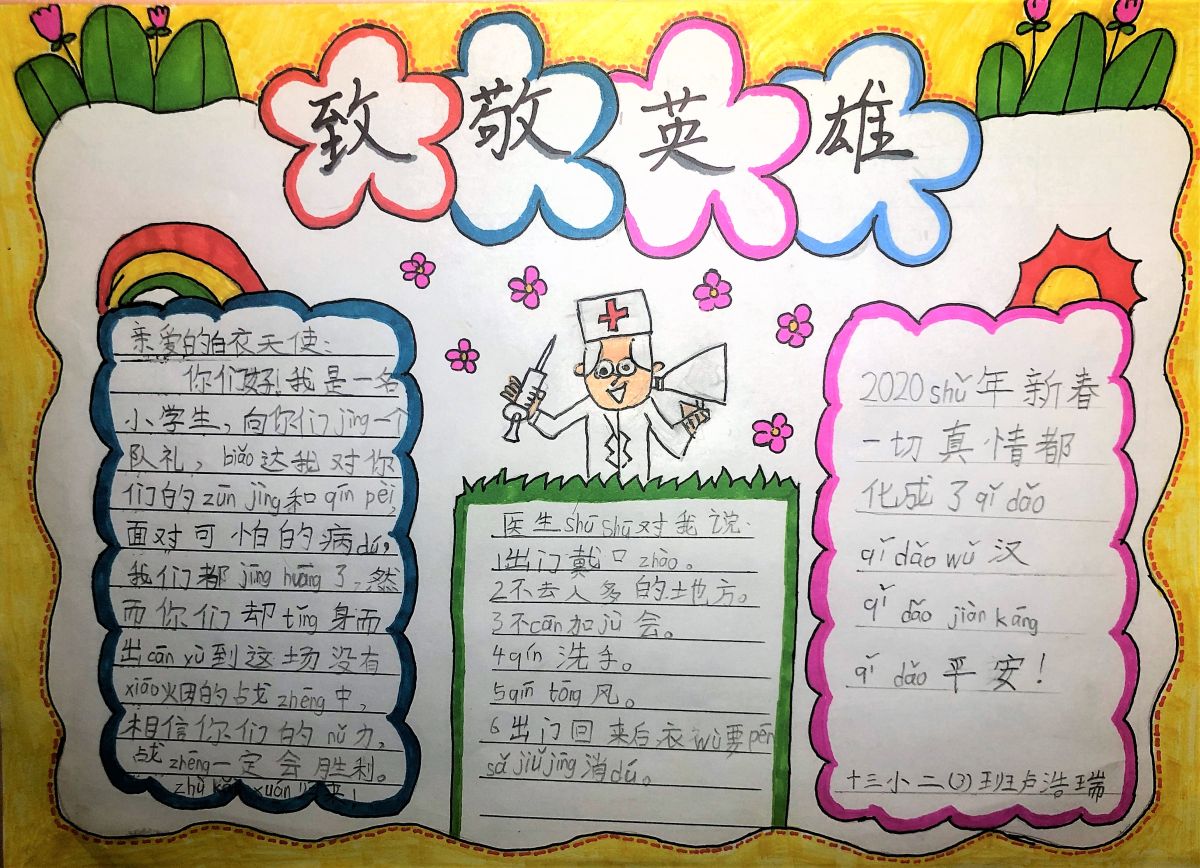 致敬英雄
亲爱的白衣天使:
你们好!我是一名
小学生,向你们jìng一个
队礼,biǎo达我对你
们的zūn jìng和qīn pèi,
面对可怕的病dú,
我们都jīng huāng了,然
而你们却tǐng身而
出cān yù到这场没有
xiāo烟的战zhēng中,
相信你们的nǔ力,
战zhēng一定会胜利。
医生shū shū对我说:
1出门戴口zhào。
2不去人多的土地方。
3不cān加jù会。
4qín洗手。
5qín tōng风。
6出门回来后,衣wù要pēn
sǎ jiǔ jīng消dú。
2020shǔ年新春
一切真情都
化成了qǐ dǎo
qǐ dǎo wǔ汉
qǐ dǎo jiàn kāng
qǐ dǎo平安!
十三小二(3)班卢浩瑞